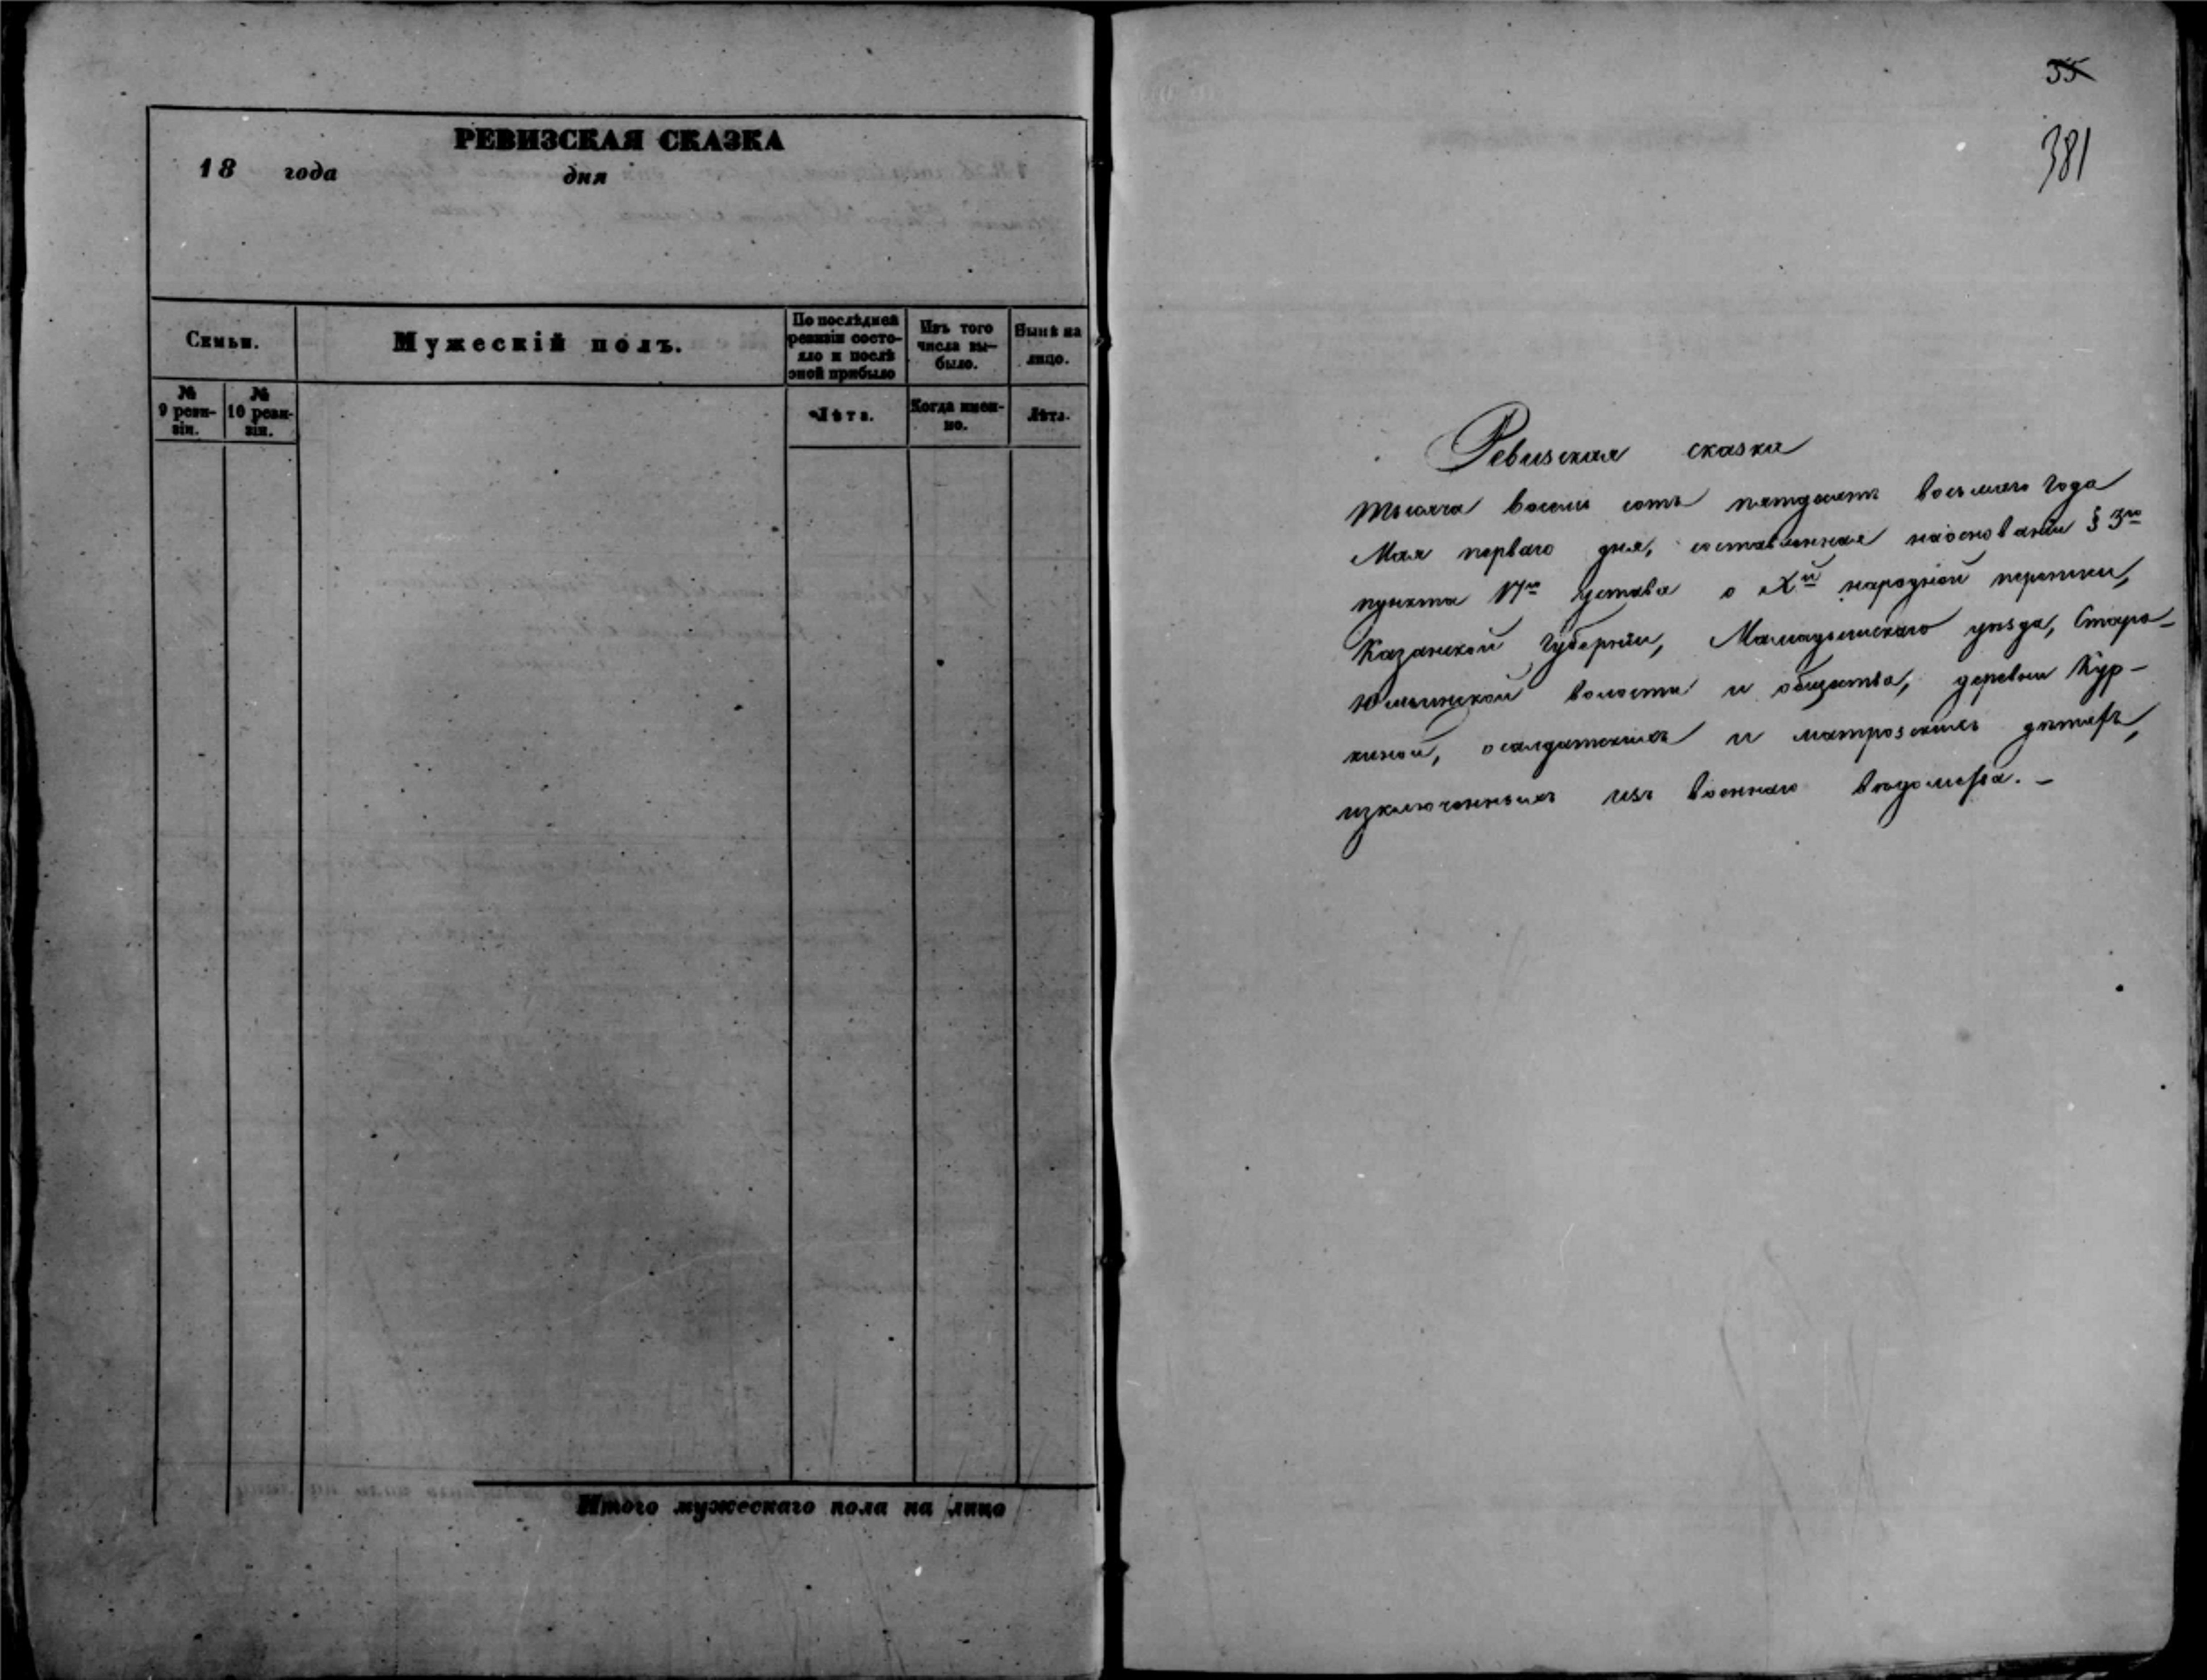 РЕВИЗСКАЯ СКАЗКА
18 года дня
Семьи.
Мужескій полъ.
По послѣдней ревизіи состояло и послѣ оной прибыло
Изъ того числа выбыло.
Нынѣ на лицо.
№ 9 ревизіи.
№ 10 ревизіи.
Лѣта.
Когда именно.
Лѣта.
Итого мужескаго пола на лицо
55
381
Ревизская сказка
тысяча восемь сотъ пятдесятъ восьмаго года
Мая перваго дня, составленная наосновании § 3го
пункта 17го Устава о Xй народной переписи,
Казанской Губерніи, Мамадышскаго уѣзда, Старо-
Юмьинской волости и общества, деревни Кур-
киной, осалдатскихъ и матрозскихъ дѣтяхъ,
изключенныхъ изъ военнаго вѣдомства. –